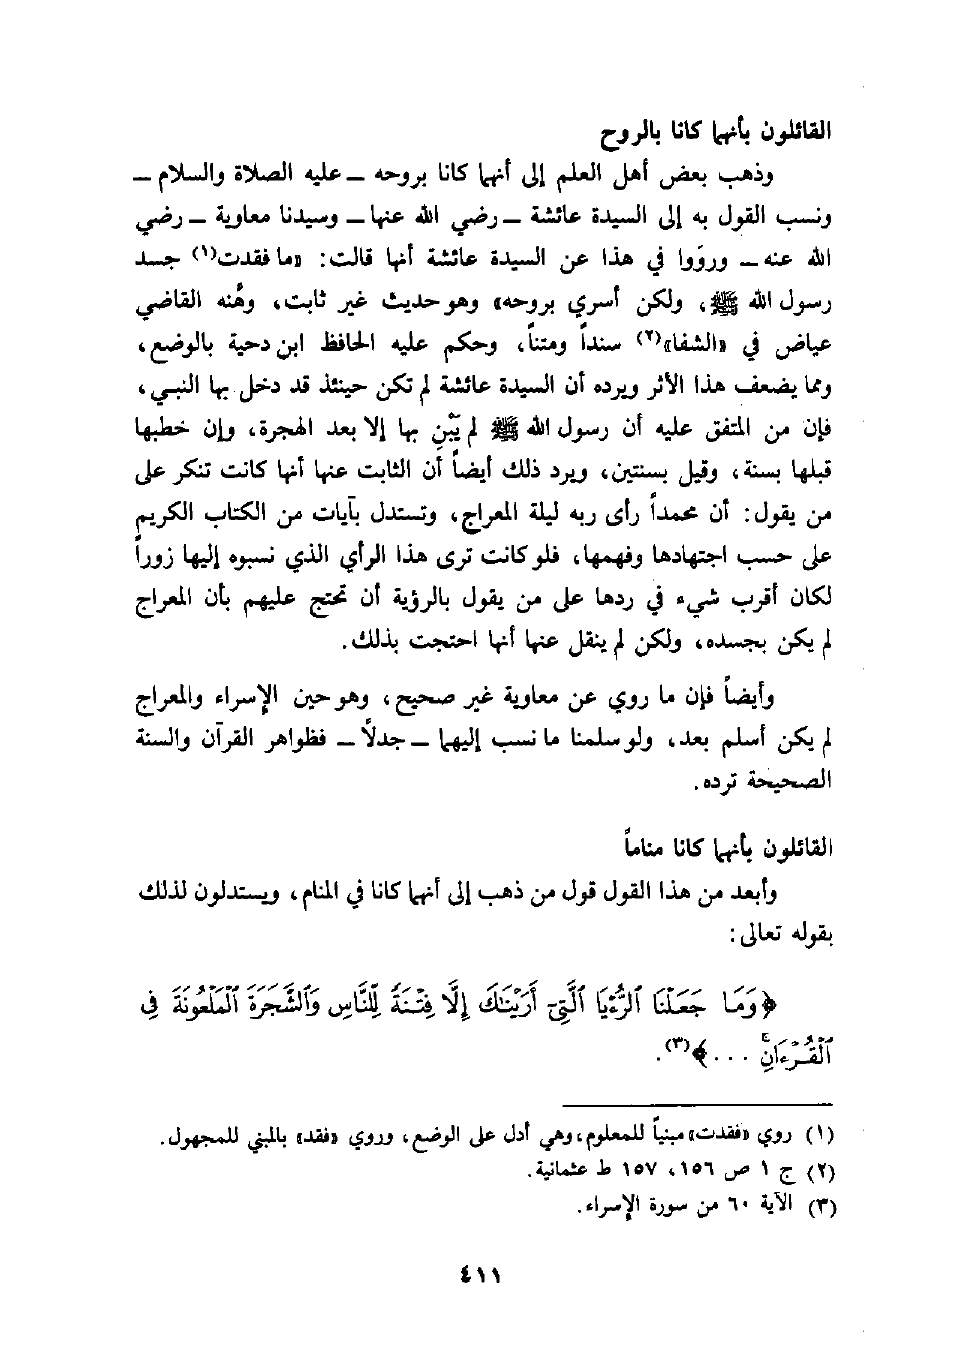 القائلون بأنهما كانا بالروح
وذهب بعض أهل العلم إلى أنهما كانا بروحه ــ عليه الصلاة والسلام ــ
ونسب القول به إلى السيدة عائشة ــ رضي الله عنها ــ وسيدنا معاوية ــ رضي
الله عنه ــ ورؤوا في هذا عن السيدة عائشة أنها قالت: «ما فقدت(١) جسد
رسول الله ﷺ، ولكن أسري بروحه» وهو حديث غير ثابت، وهَّنه القاضي
عياض في «الشفا»(٢) سنداً ومتناً، وحكم عليه الحافظ ابن دحية بالوضع،
ومما يضعف هذا الأثر ويرده أن السيدة عائشة لم تكن حينئذ قد دخل بها النبي،
فإن من المتفق عليه أن رسول الله ﷺ لم يَبْنِ بها إلا بعد الهجرة، وإن خطبها
قبلها بسنة، وقيل بسنتين، ويرد ذلك أيضاً أن الثابت عنها أنها كانت تنكر على
من يقول: أن محمداً رأى ربه ليلة المعراج، وتستدل بآيات من الكتاب الكريم
على حسب اجتهادها وفهمها، فلو كانت ترى هذا الرأي الذي نسبوه إليها زوراً
لكان أقرب شيء في ردها على من يقول بالرؤية أن تحتج عليهم بأن المعراج
لم يكن بجسده، ولكن لم ينقل عنها أنها احتجت بذلك.
وأيضاً فإن ما روي عن معاوية غير صحيح، وهو حين الإسراء والمعراج
لم يكن أسلم بعد، ولو سلمنا ما نسب إليهما ــ جدلاً ــ فظواهر القرآن والسنة
الصحيحة ترده.
القائلون بأنهما كانا مناماً
وأبعد من هذا القول قول من ذهب إلى أنهما كانا في المنام، ويستدلون لذلك
بقوله تعالى:
﴿وَمَا جَعَلْنَا ٱلرُّءْيَا ٱلَّتِىٓ أَرَيْنَٰكَ إِلَّا فِتْنَةً لِّلنَّاسِ وَٱلشَّجَرَةَ ٱلْمَلْعُونَةَ فِى
ٱلْقُرْءَانِۚ ...﴾(٣).
(١) روي «فقدت» مبنياً للمعلوم، وهي أدل على الوضع، وروي «فقد» بالمبني للمجهول.
(٢) ج ١ ص ١٥٦، ١٥٧ ط عثمانية.
(٣) الآية ٦٠ من سورة الإسراء.
٤١١